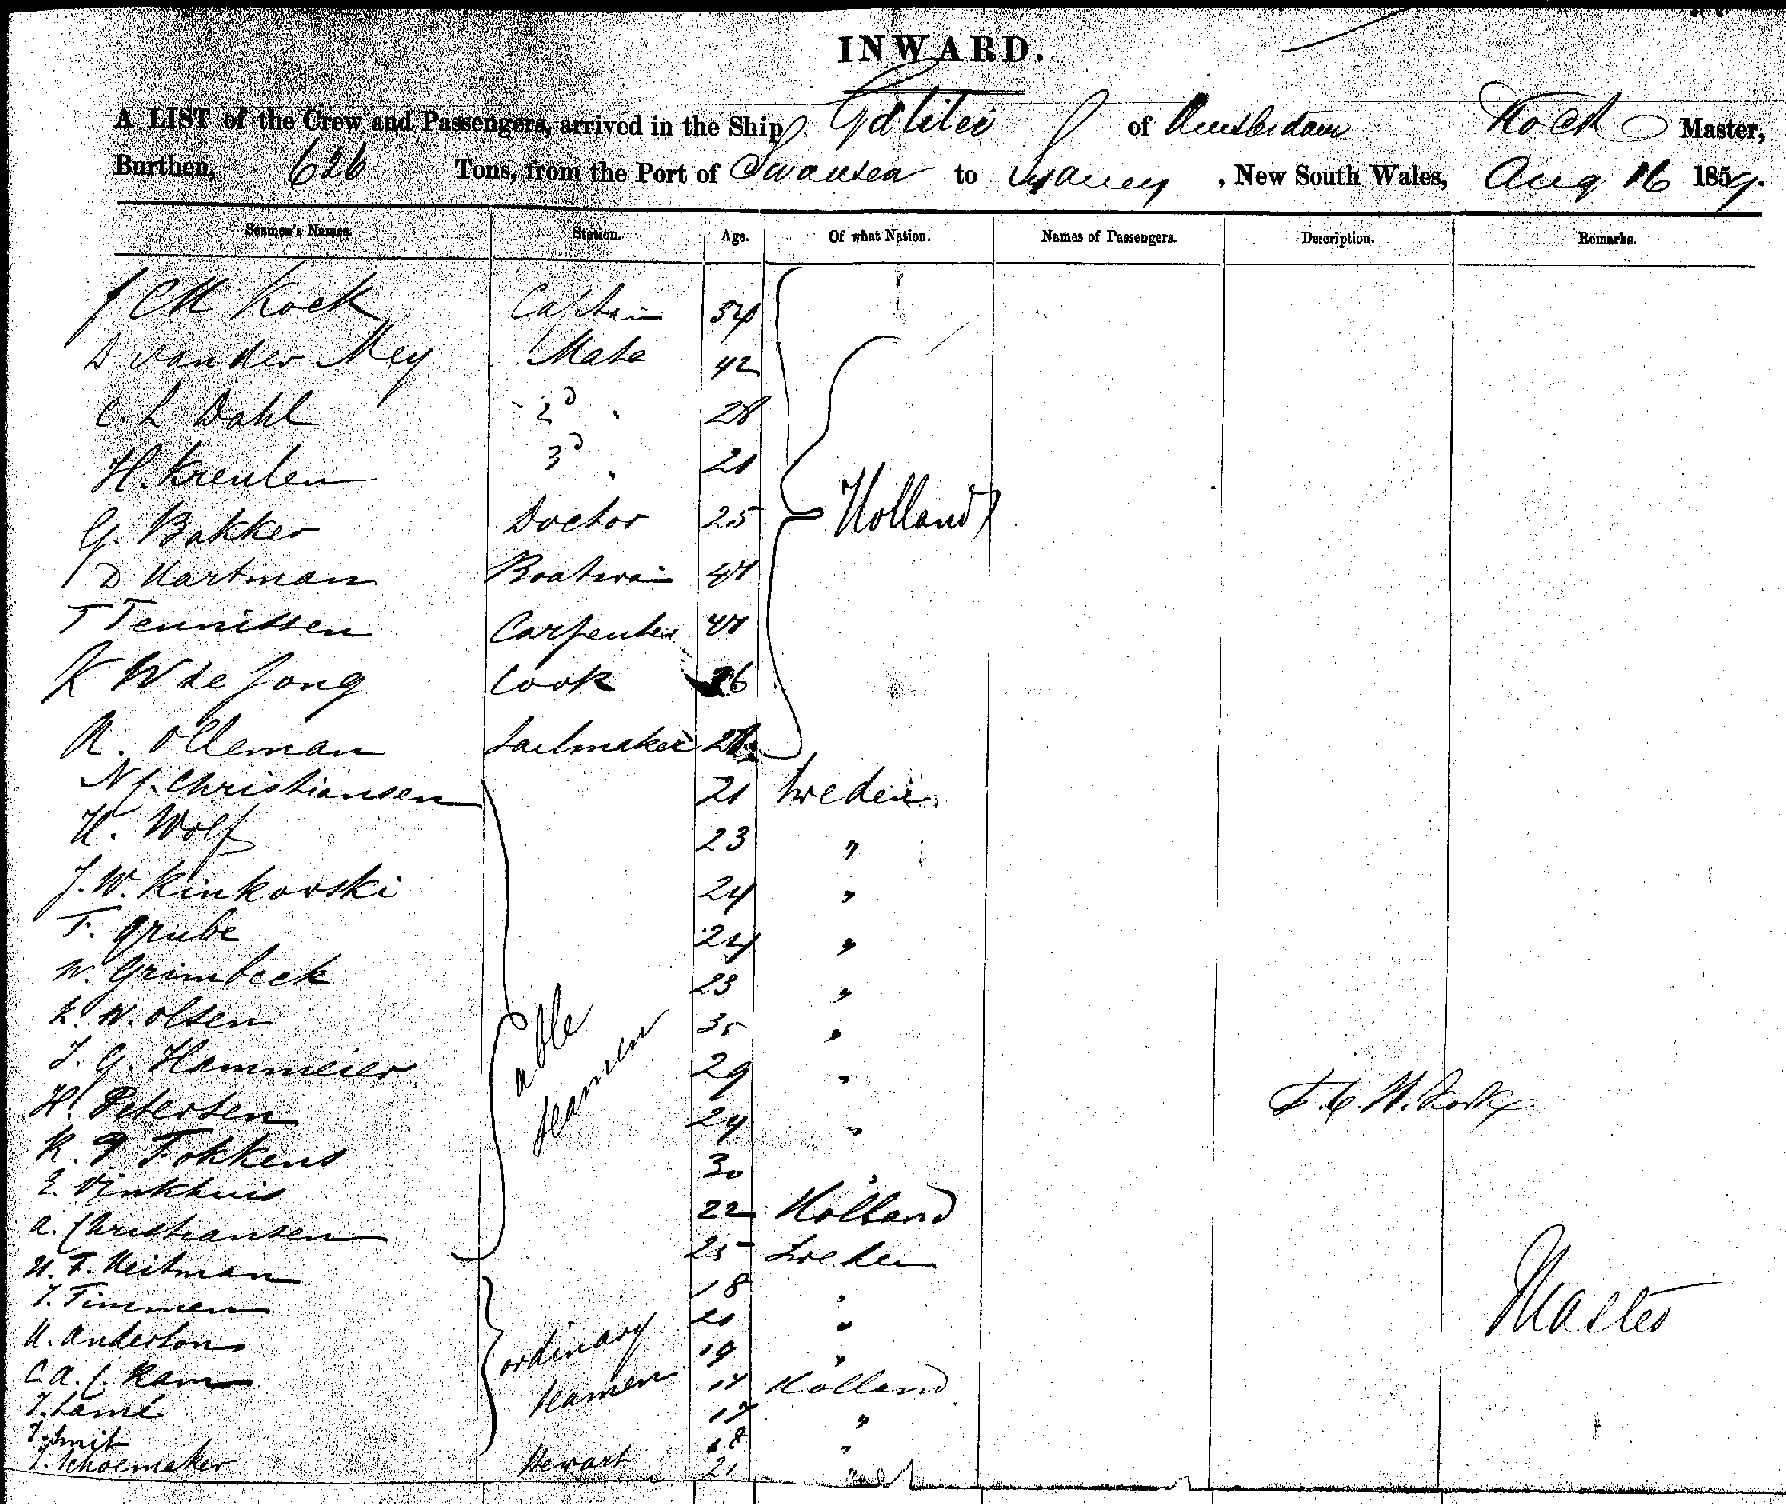 INWARD.
A LIST of the Crew and Passengers, arrived in the Ship Galilei of Amsterdam Kock Master,
Burthen, 626 Tons, from the Port of Swansea to Sydney, New South Wales, Aug 16 1859.
Seamen's Names. Station. Age. Of what Nation. Names of Passengers. Description. Remarks.
J C M Kock Captain 34
D van der Mey Mate 42
C. L Dahl 2d " 28
H. Kreulen 3d " 21
G. Bakker Doctor 25 Holland
D Hartman Boatswain
T Teunissen Carpenter
K W de Jong Cook 26
R. Olleman Sailmaker
N J. Christiansen 21 Sweden
H. Wolf 23 "
J. W. Kinkovski 24 "
F. Grube 24 "
W. Grimbeek 23 "
L. W. Olsen 35 "
J. G. Hammeier 29 "
able seamen
H. Petersen 24 "
J. C M. Kock
R. P Fokkens 30 "
E. Vinkhuis 22 Holland
A. Christiansen 25 Sweden
H. F. Heitman 18 "
J. Timmen 20 "
Master
A. Anderson 19 "
ordinary seamen
C. A. J. Ram 17 Holland
J. Lamé 17 "
J. Smit 18 "
J. Schoemaker Stewart 21 "